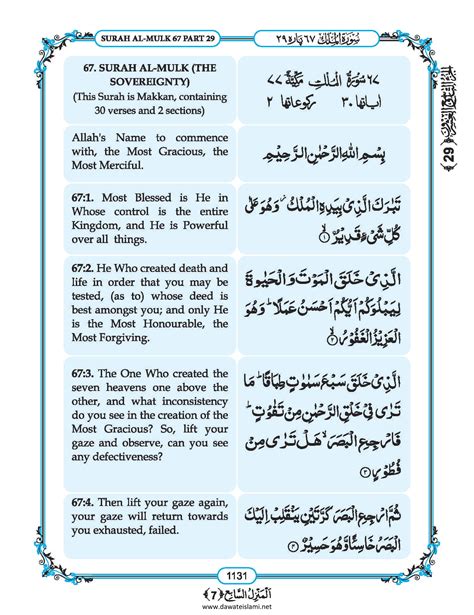 SURAH AL-MULK 67 PART 29
سُوْرَةُ الْمُلْك ٦٧ پاره ٢٩
29
67. SURAH AL-MULK (THE
SOVEREIGNTY)
(This Surah is Makkan, containing
30 verses and 2 sections)
٦٧ سُوْرَةُ الْمُلْكِ مَكِّيَّةٌ ٧٧
اٰیاتها ٣٠ رکوعاتها ٢
Allah's Name to commence
with, the Most Gracious, the
Most Merciful.
بِسْمِ اللّٰهِ الرَّحْمٰنِ الرَّحِيْمِ
67:1. Most Blessed is He in
Whose control is the entire
Kingdom, and He is Powerful
over all things.
تَبٰرَكَ الَّذِيْ بِيَدِهِ الْمُلْكُ ۫ وَهُوَ عَلٰى
كُلِّ شَيْءٍ قَدِيْرٌ ۙ﴿١﴾
67:2. He Who created death and
life in order that you may be
tested, (as to) whose deed is
best amongst you; and only He
is the Most Honourable, the
Most Forgiving.
الَّذِيْ خَلَقَ الْمَوْتَ وَالْحَيٰوةَ
لِيَبْلُوَكُمْ اَيُّكُمْ اَحْسَنُ عَمَلًا ؕ وَهُوَ
الْعَزِيْزُ الْغَفُوْرُ ۙ﴿٢﴾
67:3. The One Who created the
seven heavens one above the
other, and what inconsistency
do you see in the creation of the
Most Gracious? So, lift your
gaze and observe, can you see
any defectiveness?
الَّذِيْ خَلَقَ سَبْعَ سَمٰوٰتٍ طِبَاقًا ؕ مَا
تَرٰى فِيْ خَلْقِ الرَّحْمٰنِ مِنْ تَفٰوُتٍ ؕ
فَارْجِعِ الْبَصَرَ ۙ هَلْ تَرٰى مِنْ
فُطُوْرٍ ﴿٣﴾
67:4. Then lift your gaze again,
your gaze will return towards
you exhausted, failed.
ثُمَّ ارْجِعِ الْبَصَرَ كَرَّتَيْنِ يَنْقَلِبْ اِلَيْكَ
الْبَصَرُ خَاسِئًا وَّهُوَ حَسِيْرٌ ﴿٤﴾
1131
اَلْمَنْزِلُ السَّابِع ﴿7﴾
www.dawateislami.net